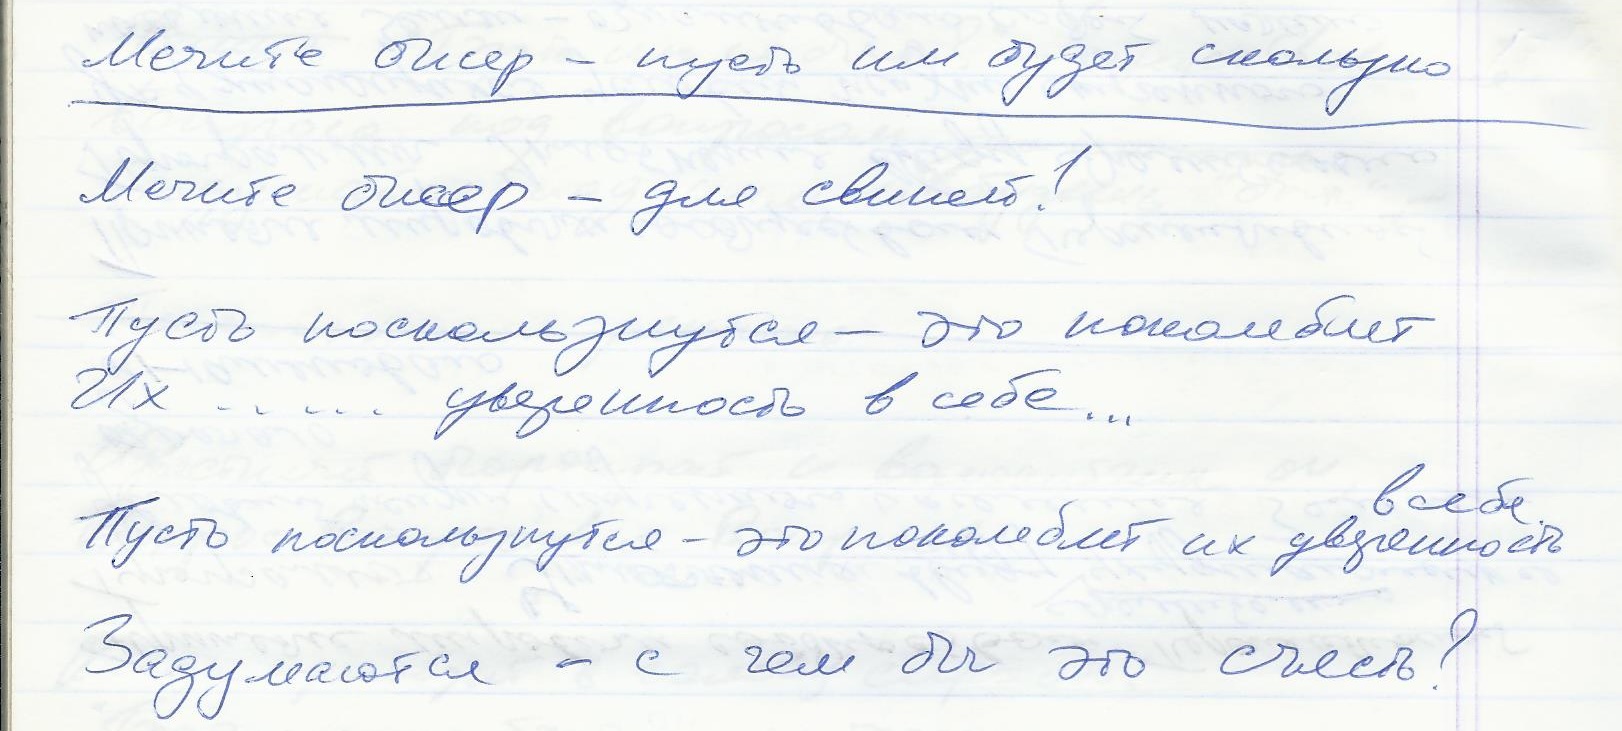 Мечите бисер – пусть им будет скользко
Мечите бисер – для свиней!
Пусть поскользнутся – это поколеблет
Их ...... уверенность в себе...
в себе.
Пусть поскользнутся – это поколеблет их уверенность
Задумаются – с чем бы это съесть?